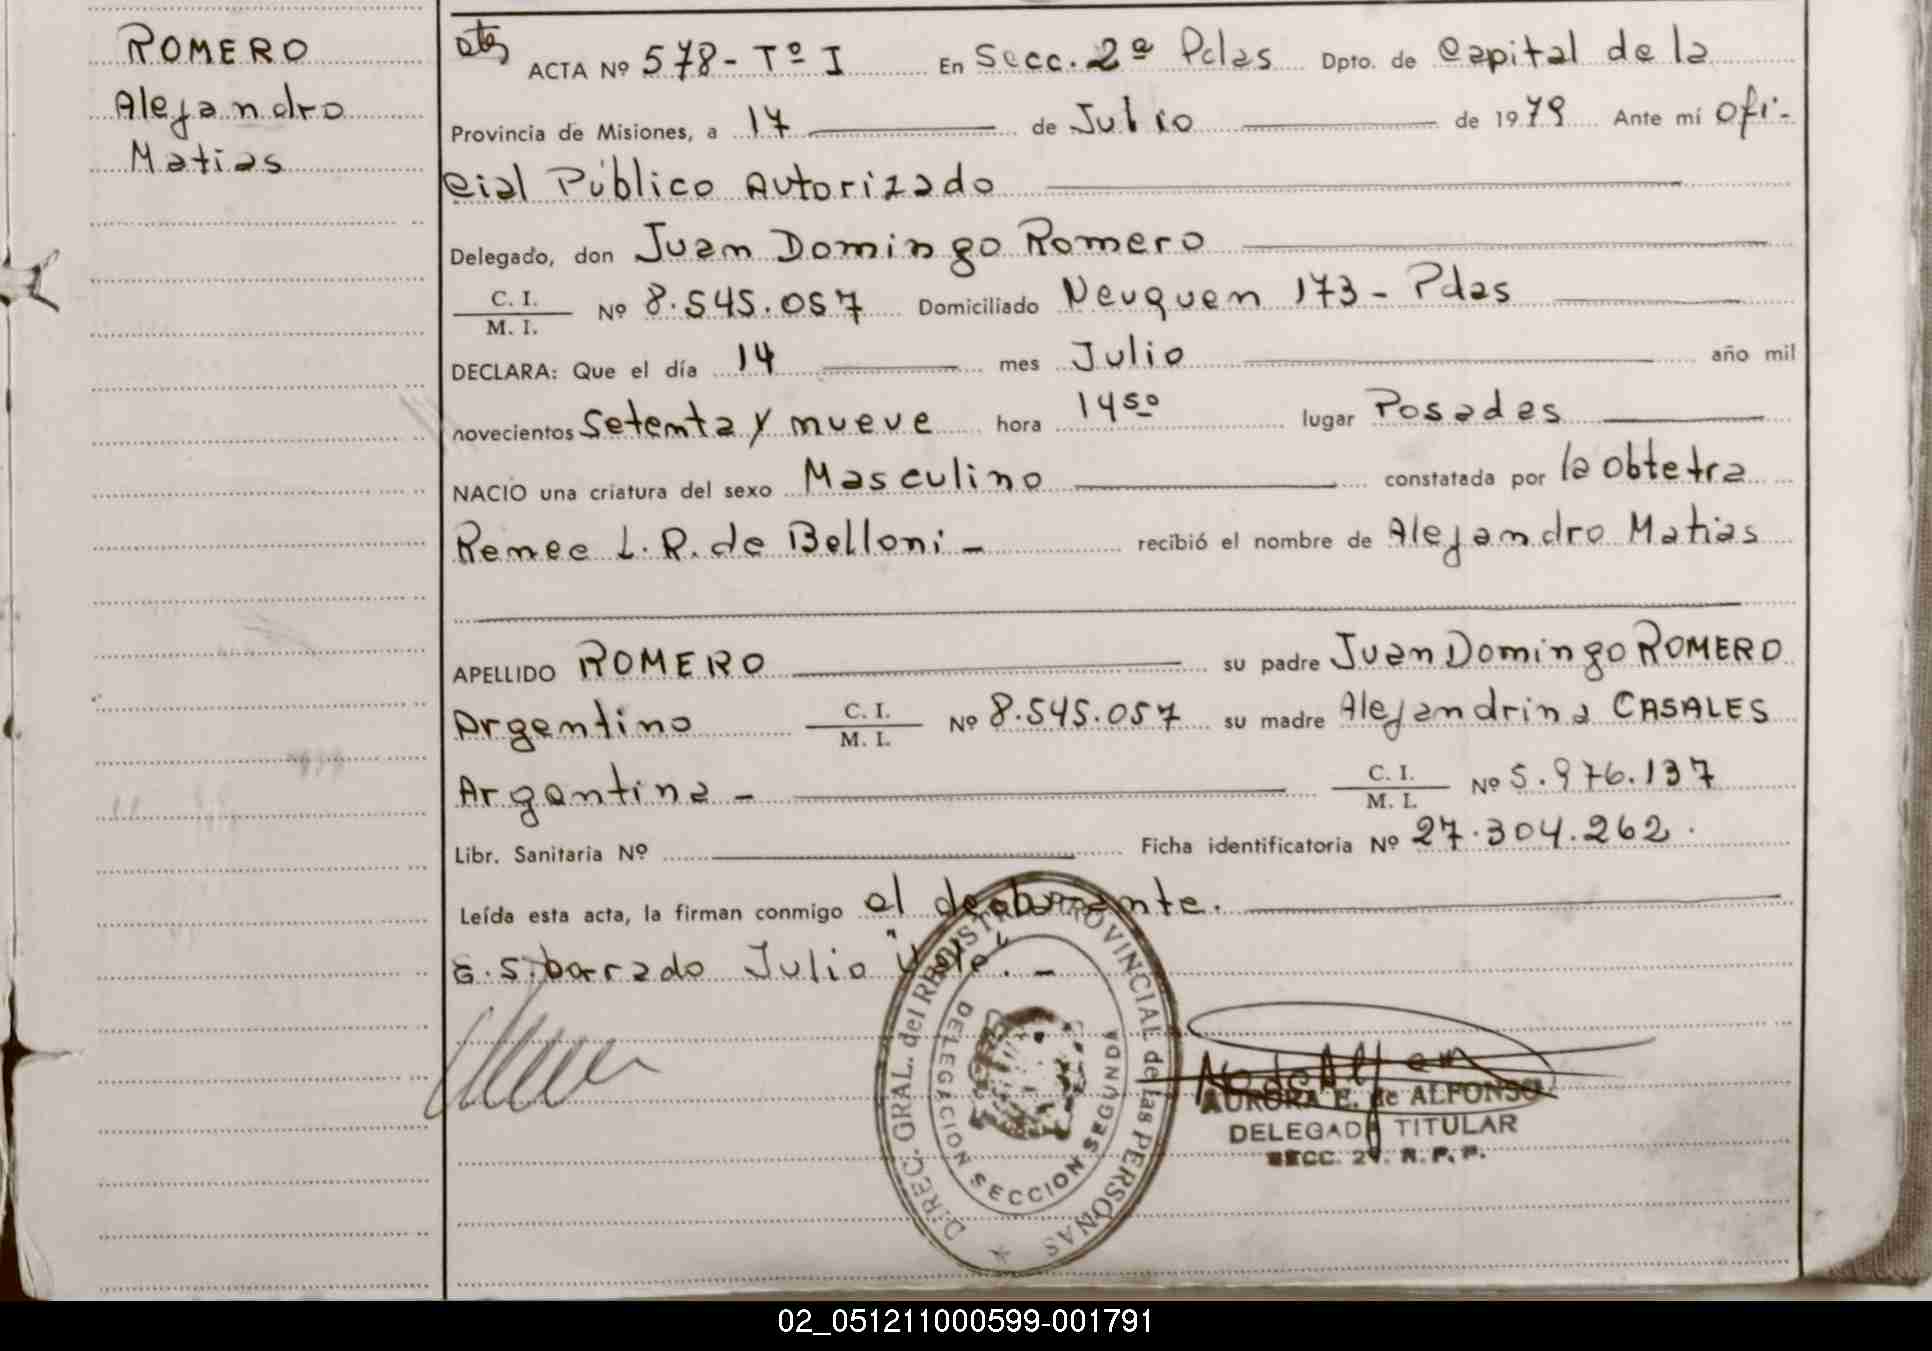 ROMERO
Alejandro
Matias
ACTA Nº 578 - Tº I En Secc. 2ª Pdas Dpto. de Capital de la
Provincia de Misiones, a 17 de Julio de 1979 Ante mí Ofi-
cial Público Autorizado
Delegado, don Juan Domingo Romero
C. I.
M. I. Nº 8.545.057 Domiciliado Neuquen 173 - Pdas
DECLARA: Que el día 14 mes Julio año mil
novecientos Setenta y nueve hora 14 50 lugar Posadas
NACIO una criatura del sexo Masculino constatada por la Obtetra
Renee L. R. de Belloni - recibió el nombre de Alejandro Matias
APELLIDO ROMERO su padre Juan Domingo ROMERO
Argentino C. I. M. I. Nº 8.545.057 su madre Alejandrina CASALES
Argentina - C. I. M. I. Nº 5.976.137
Libr. Sanitaria Nº Ficha identificatoria Nº 27.304.262.
Leída esta acta, la firman conmigo el declarante.
E. S. borrado Julio "Vale". -
DIREC. GRAL. del REGISTRO PROVINCIAL de las PERSONAS
DELEGACION SECCION SEGUNDA
AURORA E. de ALFONSO
DELEGADA TITULAR
SECC. 2ª. R. P. P.
02_051211000599-001791